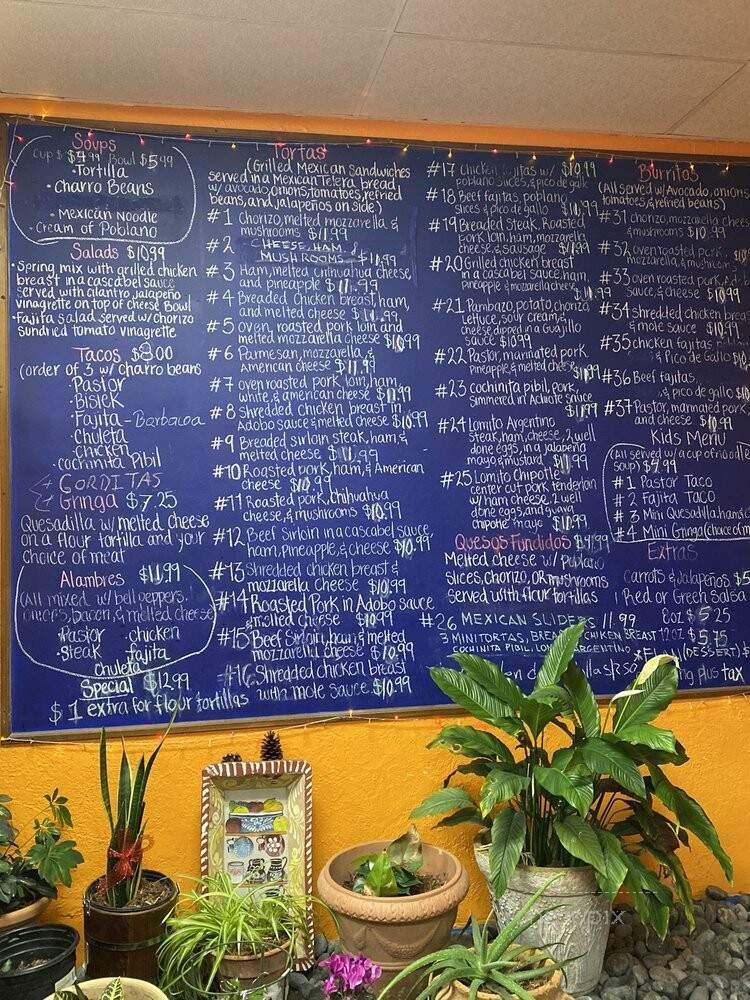 Soups
Cup $4.99 Bowl $5.99
• Tortilla
• Charro Beans
• Mexican Noodle
• Cream of Poblano
Salads $10.99
• Spring mix with grilled chicken
breast in a cascabel sauce
served with cilantro jalapeño
vinagrette on top of cheese Bowl
• Fajita salad served w/chorizo
sundried tomato vinagrette
Tacos $8.00
(order of 3 w/ charro beans
• Pastor
• Bistek
• Fajita - Barbacoa
• Chuleta
• Chicken
• cochinita Pibil
GORDITAS
Gringa $7.25
Quesadilla w/ melted cheese
on a flour tortilla and your
choice of meat
Alambres $11.99
(All mixed w/ bell peppers,
onions, bacon, & melted cheese
• Pastor • chicken
• Steak • fajita
Chuleta
Special $12.99
$1 extra for flour tortillas
Tortas
(Grilled Mexican sandwiches
served in a Mexican Telera bread
w/ avocado, onions, tomatoes, refried
beans, and jalapeños on side)
#1 Chorizo, melted mozzarella, &
mushrooms $11.99
#2 CHEESE, HAM, &
MUSHROOMS $11.99
#3 Ham, melted chihuahua cheese,
and pineapple $11.99
#4 Breaded chicken breast, ham,
and melted cheese $11.99
#5 oven roasted pork loin and
melted mozzarella cheese $10.99
#6 Parmesan, mozzarella, &
American cheese $11.99
#7 oven roasted pork loin, ham,
white, & american cheese $11.99
#8 Shredded chicken breast in
Adobo sauce & melted cheese $10.99
#9 Breaded sirloin steak, ham, &
melted cheese $11.99
#10 Roasted pork, ham, & American
cheese $10.99
#11 Roasted pork, chihuahua
cheese, & mushrooms $10.99
#12 Beef Sirloin in a cascabel sauce,
ham, pineapple, & cheese $10.99
#13 Shredded chicken breast &
mozzarella cheese $10.99
#14 Roasted Pork in Adobo sauce
& melted cheese $10.99
#15 Beef Sirloin, ham, & melted
mozzarella cheese $10.99
#16 Shredded chicken breast
with mole sauce $10.99
#17 Chicken fajitas w/ $10.99
poblano slices, & pico de gallo
#18 Beef fajitas, poblano
slices & pico de gallo $11.99
#19 Breaded Steak, Roasted
pork loin, ham, mozzarella
cheese, & sausage $11.99
#20 Grilled chicken breast
in a cascabel sauce, ham,
pineapple & mozzarella cheese $11.99
#21 Pambazo, potato, chorizo,
lettuce, sour cream, &
cheese dipped in a Guajillo
sauce $10.99
#22 Pastor, marinated pork,
pineapple, & melted cheese $11.99
#23 cochinita pibil, pork,
simmered in Achiote Sauce
$11.99
#24 Lomito Argentino
steak, ham, cheese, 2 well
done eggs, in a jalapeña
mayo & mustard $11.99
#25 Lomito Chipotle
center cut pork tenderloin
w/ ham, cheese, 2 well
done eggs, and guang
chipotle mayo $10.99
Quesos Fundidos $4.99
Melted cheese w/ poblano
slices, chorizo, OR mushrooms
served with flour tortillas
#26 MEXICAN SLIDERS 11.99
3 MINITORTAS, BREADED CHICKEN BREAST
COCHINITA PIBIL, LOMITO ARGENTINO
Burritos
(All served w/ Avocado, onions
tomatoes, & refried beans)
#31 chorizo, mozzarella cheese
& mushrooms $10.99
#32 oven roasted pork
mozzarella, & mushrooms
#33 oven roasted pork, Adobo
sauce, & cheese $10.99
#34 shredded chicken breast
& mole sauce $10.99
#35 chicken fajitas
& Pico de Gallo
#36 Beef fajitas,
& pico de gallo
#37 Pastor, marinated pork
and cheese $10.99
Kids Menu
(All served w/ a cup of noodle
soup) $7.99
#1 Pastor Taco
#2 Fajita TACO
#3 Mini Quesadilla, ham & c
#4 Mini Gringa (choice of m
Extras
Carrots & Jalapeños $5
Red or Green Salsa
8oz $5.25
12oz $5.75
*FLAN (DESSERT) $
plus tax